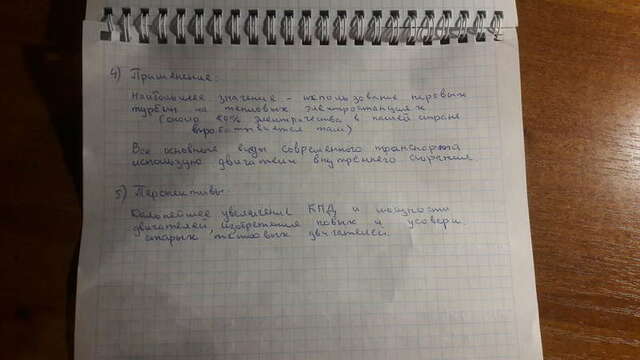 4) Применение:
Наибольшее значение - использование паровых
турбин на тепловых электростанциях
(около 80% электричества в нашей стране
вырабатывается там)
Все основные виды современного транспорта
используют двигатели внутреннего сгорания.
5) Перспективы:
Дальнейшее увеличение КПД и мощности
двигателей, изобретение новых и усоверш.
старых тепловых двигателей.